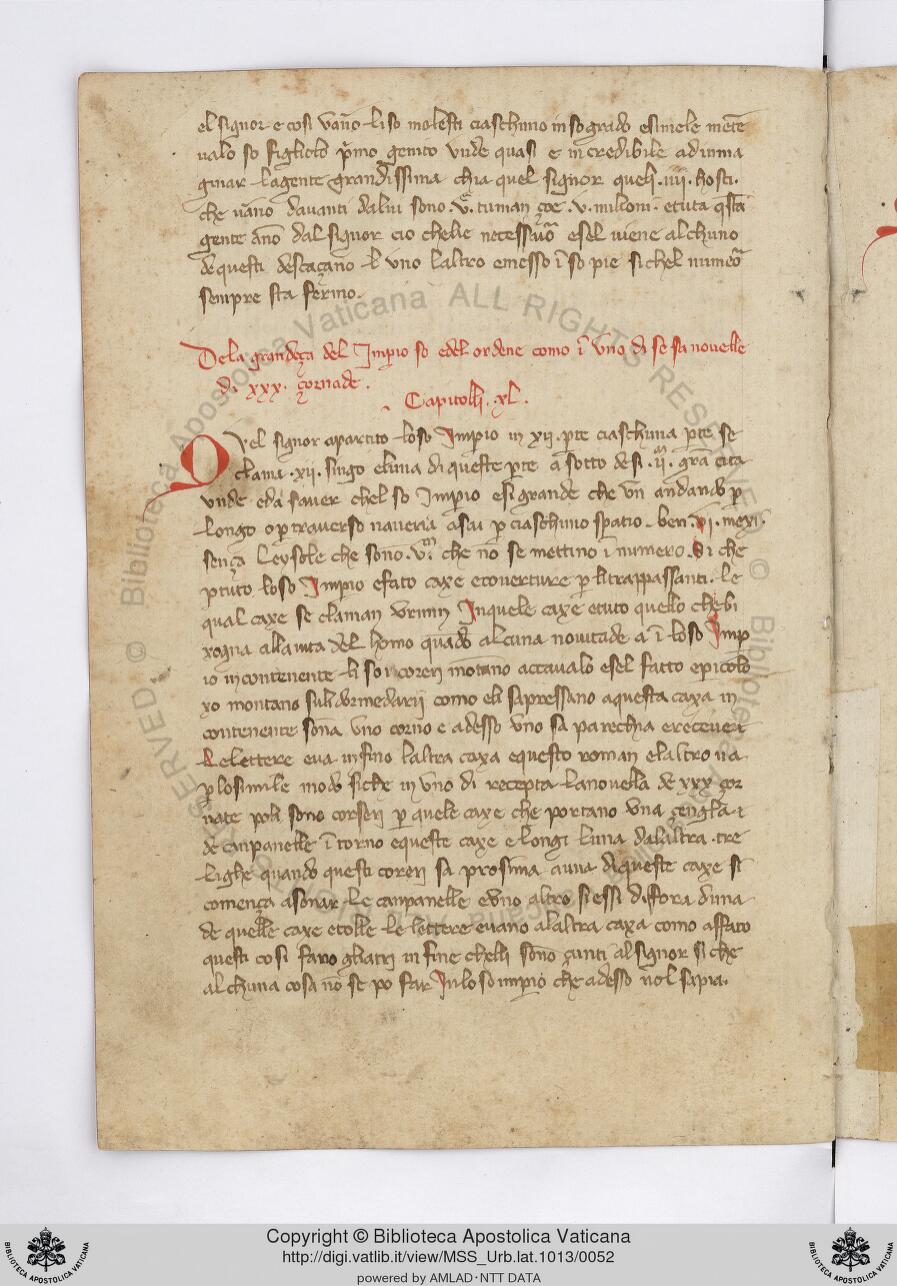 el signor e cosi vano li so molesti ciaschuno in so grado e simele mete
ualo so figliolo pmo genito unde quasi e incredibile ad ima
ginar la gente grandissima ch'ia quel signor queli .iiii. hosti.
che uano dauanti da lui sono .v. tuman çoe .v. milioni. e tuta qsta
gente ano dal signor cio che li e necessario e se l uiene alchuno
de questi descaçano l uno l altro e messo i so pie si chel numero
sempre sta fermo.
De la grandeça del Imperio so e del ordene como i uno di se sa nouelle
di xxx. çornade.
Capitolli. xl.
Quel signor a partito lo so Imperio in xii. pte ciaschuna pte se
clama .xii. singo e luna di queste pte a sotto de si .ii. gra cita
unde e da sauer chel so Imperio e si grande che un andando p
longo o p trauerso naueria asai p ciaschuno spatio ben .vi. mexi
sença le ysole che sono .v. che no se mettino i numero. Si che
p tuto lo so Imperio e fato caxe e couerture p li trappassanti. le
qual caxe se claman Inquele caxe e tuto quello che bi
xogna alla uita del homo quado alcuna nouitade a i lo so Imp
io incontenente li so coreri motano a cauallo e se l fatto e picolo
xo montano su li dormedarii como eli s apressano a questa caxa in
contenente sona uno corno e adesso uno s aparechia e receuer
le lettere e ua in fino l altra caxa e questo roman e l altro ua
p lo simile modo si che in uno di recepta la nouella de xxx çor
nate poli sono corseri per quele caxe che portano una çengla
de canpanelle i torno e queste caxe e longi luna dal altra tre
lighe quando questi coreri s a prosima a una di queste caxe si
comença a sonar le canpanelle e uno altro si essi di ffora d una
de quelle caxe e tolle le lettere e uano al altra caxa como a ffato
questi cosi faro gl altri in fine che lli sono çunti al signor si che
alchuna cosa no se po far In lo so imperio che adesso nol sapia.
Copyright © Biblioteca Apostolica Vaticana
http://digi.vatlib.it/view/MSS_Urb.lat.1013/0052
powered by AMLAD·NTT DATA
BIBLIOTECA APOSTOLICA VATICANA
BIBLIOTECA APOSTOLICA VATICANA